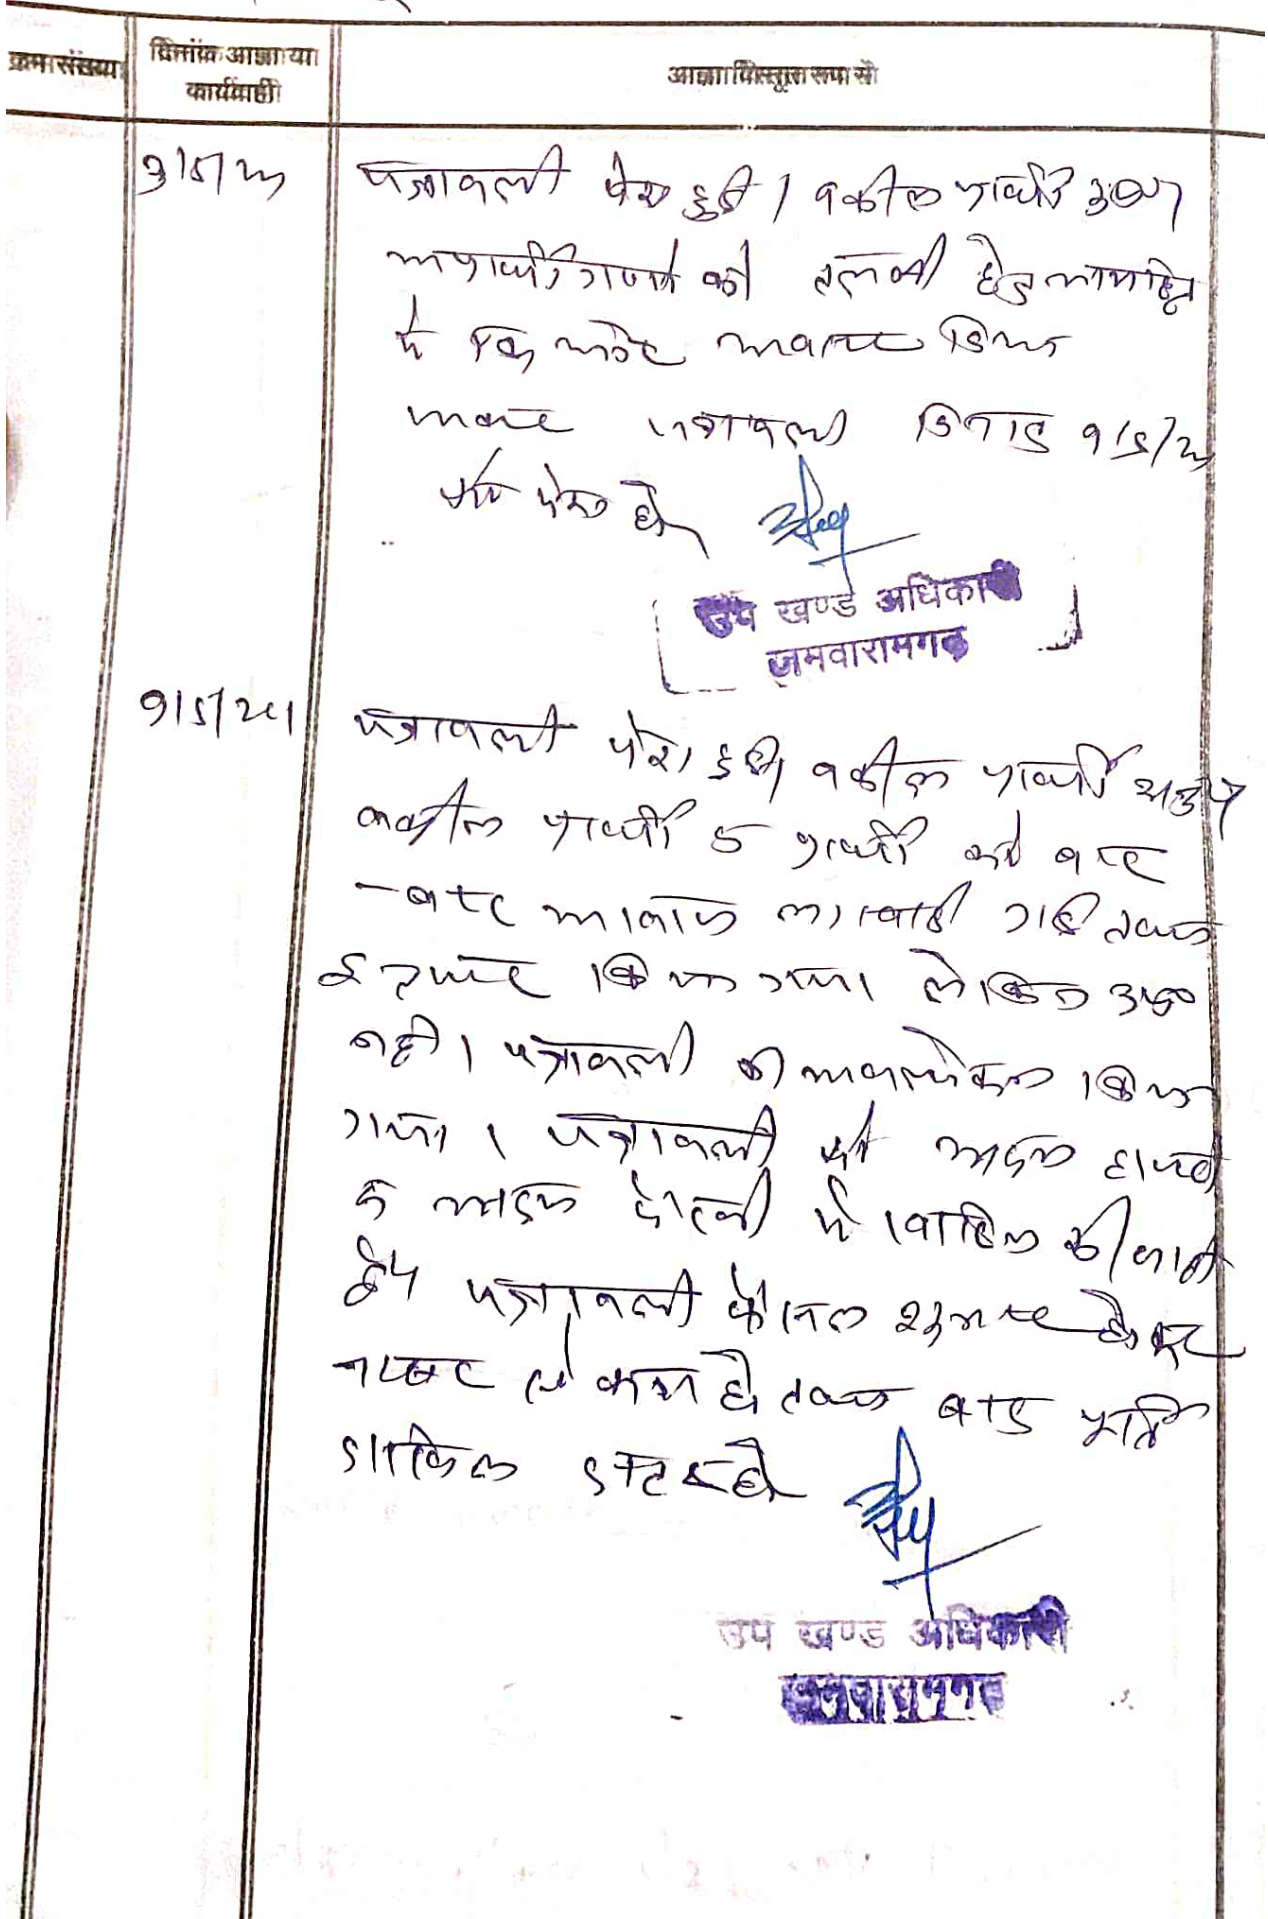 क्रम संख्या
दिनांक आज्ञा या
कार्यवाही
आज्ञा विस्तृत रूप से
पत्रावली पेश हुई। वकील प्रार्थी उप०
अप्रार्थीगणों की तलबी हेतु
में एक और अवसर दिया
जावे पत्रावली दिनांक 9/5/24
को पेश हो
उप खण्ड अधिकारी
जमवारामगढ
9/5/24
पत्रावली पेश हुई। वकील प्रार्थी अनुप०
वकील प्रार्थी व प्रार्थी को बार
-बार आवाज लगवाई गई तथा
इन्तजार किया गया। लेकिन उप०
नही। पत्रावली का अवलोकन किया
गया। पत्रावली को अदम हाजरी
व अदम पैरवी में खारिज की जाती
है। पत्रावली फैसल शुमार होकर
नम्बर से कम हो तथा बाद पूर्ति
दाखिल दफ्तर हो
उप खण्ड अधिकारी
जमवारामगढ